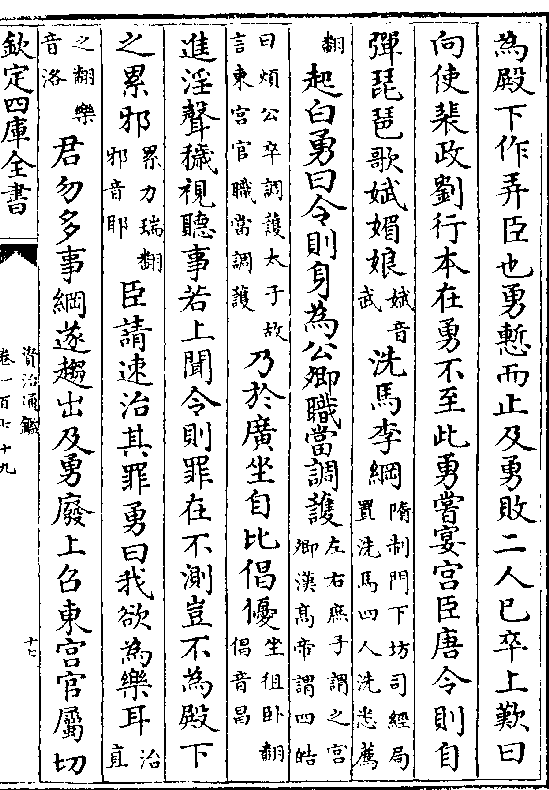 為殿下作弄臣也勇慙而止及勇敗二人已卒上歎曰
向使裴政劉行本在勇不至此勇嘗宴宫臣唐令則自
彈琵琶歌娬媚娘娬音武洗馬李綱隋制門下坊司經局置洗馬四人洗悉薦
翻起白勇曰令則身為公卿職當調護左右庶子謂之宫卿漢髙帝謂四皓
曰煩公卒調護太子故言東宫官職當調護乃於廣坐自比倡優坐徂卧翻倡音昌
進淫聲穢視聽事若上聞令則罪在不測豈不為殿下
之累邪累力瑞翻邪音耶臣請速治其罪勇曰我欲為樂耳治直
之翻樂音洛君勿多事綱遂趨出及勇廢上召東宫官屬切
欽定四庫全書
資治通鑑
卷一百七十九
十七